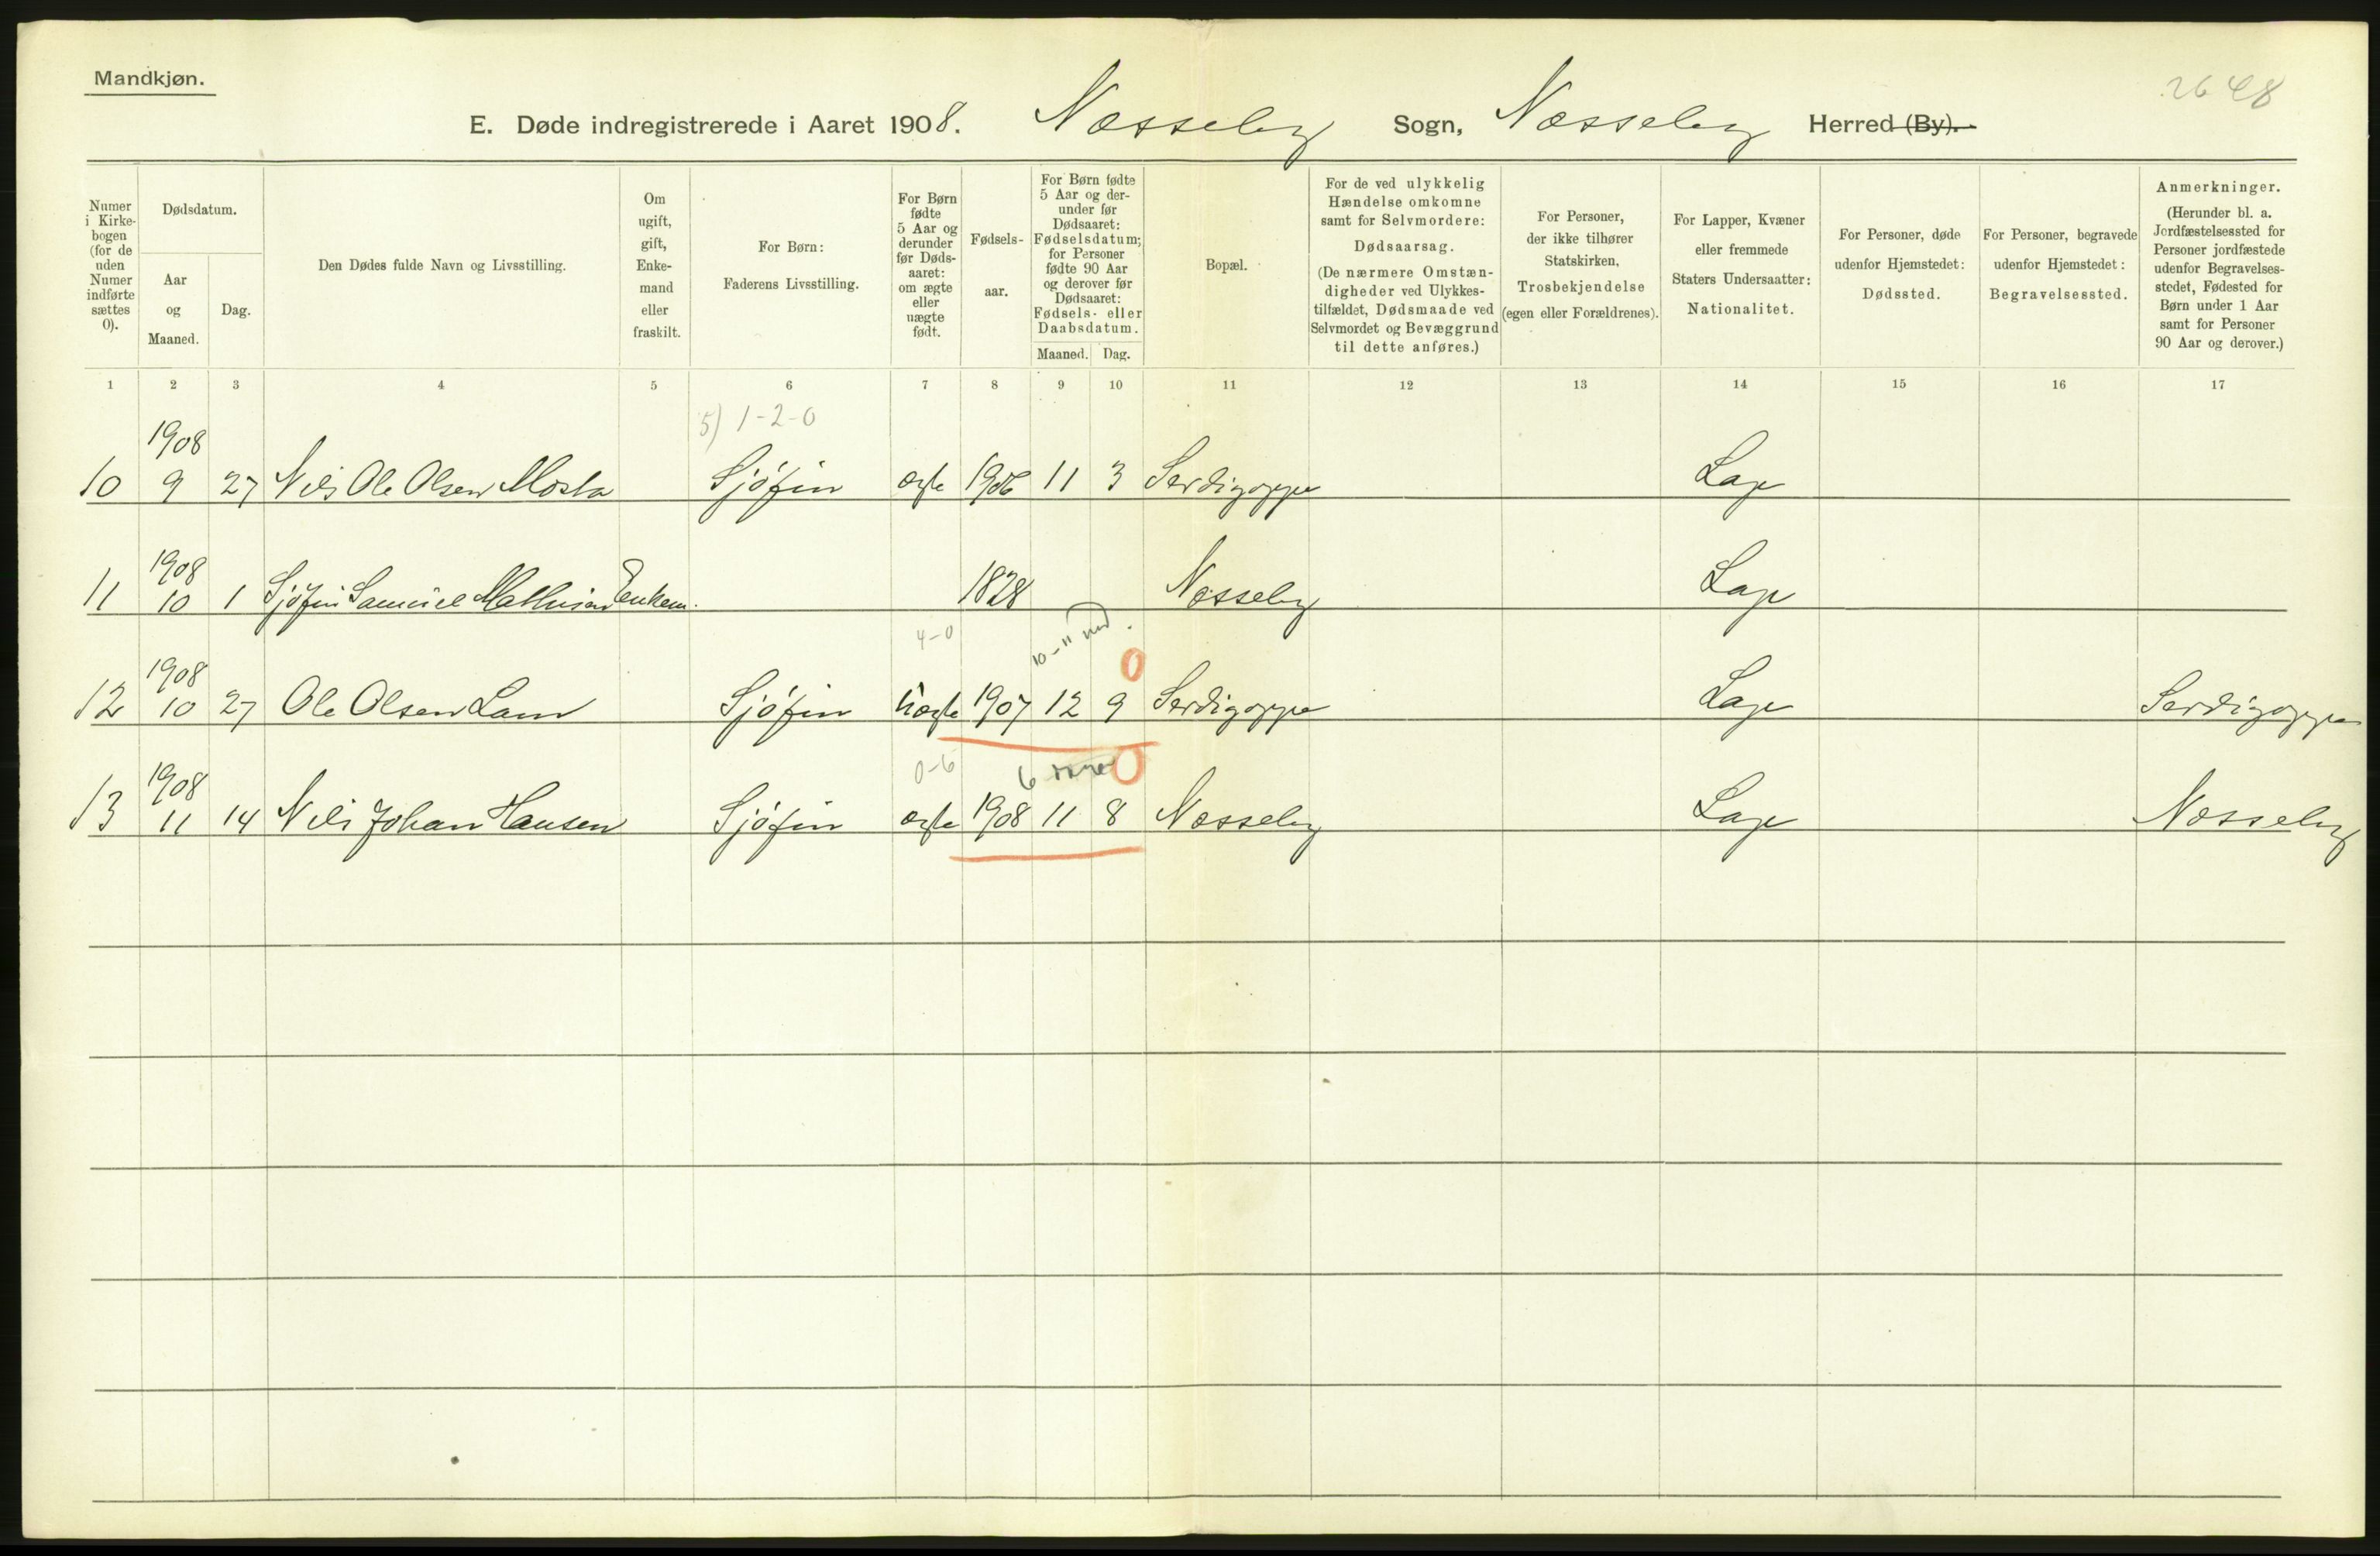 Mandkjøn.
2648
E. Døde indregistrerede i Aaret 1908. Næsseby Sogn, Næsseby Herred (By).
Numer i Kirkebogen (for de uden Numer indførte sættes 0).
Dødsdatum.
Aar og Maaned.
Dag.
Den Dødes fulde Navn og Livsstilling.
Om ugift, gift, Enkemand eller fraskilt.
For Børn: Faderens Livsstilling.
For Børn fødte 5 Aar og derunder før Dødsaaret: om ægte eller uægte født.
Fødselsaar.
For Børn fødte 5 Aar og derunder før Dødsaaret: Fødselsdatum; for Personer fødte 90 Aar og derover før Dødsaaret: Fødsels- eller Daabsdatum.
Maaned. Dag.
Bopæl.
For de ved ulykkelig Hændelse omkomne samt for Selvmordere: Dødsaarsag. (De nærmere Omstændigheder ved Ulykkestilfældet, Dødsmaade ved Selvmordet og Bevæggrund til dette anføres.)
For Personer, der ikke tilhører Statskirken, Trosbekjendelse (egen eller Forældrenes).
For Lapper, Kvæner eller fremmede Staters Undersaatter: Nationalitet.
For Personer, døde udenfor Hjemstedet: Dødssted.
For Personer, begravede udenfor Hjemstedet: Begravelsessted.
Anmerkninger. (Herunder bl. a. Jordfæstelsessted for Personer jordfæstede udenfor Begravelsesstedet, Fødested for Børn under 1 Aar samt for Personer 90 Aar og derover.)
1 2 3 4 5 6 7 8 9 10 11 12 13 14 15 16 17
5) 1-2-0
1908
10 9 27 Nils Ole Olsen Mosla Sjöfin ægte 1906 11 3 Serdigoppe Lap
1908
11 10 1 Sjöfin Samuel Mathisen Enkem. 1828 Næsseby Lap
4-0 10-11 md. 0
1908
12 10 27 Ole Olsen Lam Sjöfin uægte 1907 12 9 Serdigoppe Lap Serdigoppe
0-6 6 0
1908
13 11 14 Nils Johan Hansen Sjöfin ægte 1908 11 8 Næsseby Lap Næsseby